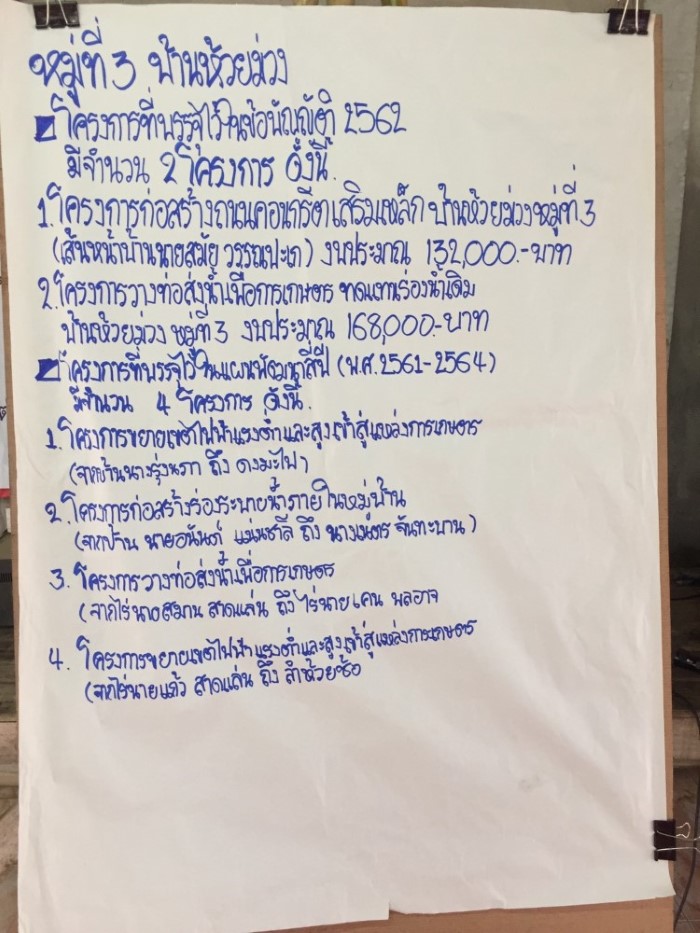 หมู่ที่ 3 บ้านห้วยม่วง
โครงการที่บรรจุไว้ในข้อบัญญัติ 2562
มีจำนวน 2 โครงการ ดังนี้.
1. โครงการก่อสร้างถนนคอนกรีตเสริมเหล็ก บ้านห้วยม่วงหมู่ที่ 3
(เส้นหน้าบ้านนายสมัย วรรณปะเก) งบประมาณ 132,000.-บาท
2. โครงการวางท่อส่งน้ำเพื่อการเกษตร ทดแทนร่องน้ำเดิม
บ้านห้วยม่วง หมู่ที่ 3 งบประมาณ 168,000.-บาท
โครงการที่บรรจุไว้ในแผนพัฒนาสี่ปี (พ.ศ. 2561-2564)
มีจำนวน 4 โครงการ ดังนี้.
1. โครงการขยายเขตไฟฟ้าแรงต่ำและสูงเข้าสู่แหล่งการเกษตร
(จากบ้านนางรุ่งนภา ถึง ดงมะไฟ)
2. โครงการก่อสร้างร่องระบายน้ำภายในหมู่บ้าน
(จากบ้าน นายอนันต์ แม่นชาลี ถึง นางเนตร จันทะบาน)
3. โครงการวางท่อส่งน้ำเพื่อการเกษตร
(จากไร่นายสมาน สาดแล่น ถึง ไร่นายเคน พลอาจ
4. โครงการขยายเขตไฟฟ้าแรงต่ำและสูงเข้าสู่แหล่งการเกษตร
(จากไร่นายแก้ว สาดแล่น ถึง ลำห้วยซ้อ